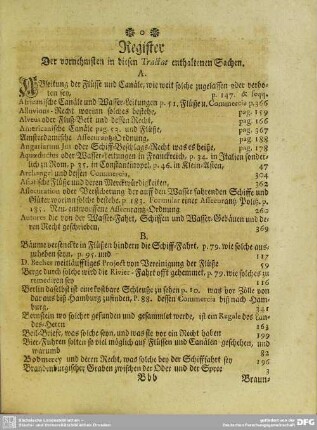 Register
Der vornehmsten in diesen Tractat enthaltenen Sachen.
A.
Ableitung der Flüsse und Canäle, wie weit solche zugelassen oder verboten sey, p. 147. & seqq.
Africanische Canäle und Wasser-Leitungen p. 51. Flüße u. Commercia p. 366
Alluvions-Recht, worinn solches bestehe, pag. 159
Alveus oder Fluß-Bett und dessen Recht, pag. 166
Americanische Canäle pag. 52. und Flüße, pag. 367
Amsterdamische Assecurantz-Ordnung pag. 187
Angariarum Jus oder Schiff-Beschlags-Recht was es heiße, pag. 178
Aquæductus oder Wasser-leitungen in Franckreich, p. 34. in Italien sonderlich in Rom. p. 35. in Constantinopel, p. 46. in Klein-Asien, 47
Archangel und dessen Commercia, 304
Asiatische Flüße und deren Merckwürdigkeiten, 362
Assecuration oder Versicherung der auf den Wasser fahrenden Schiffe und Güter, worinn solche bestehe, p. 183. Formular einer Assecurantz Polity. p. 185. Neu-revidirte Assecurantz-Ordnung 262
Autores die von der Wasser-Fahrt, Schiffen und Wasser-Gebäuen und deren Recht geschrieben, 369
B.
Bäume versenckte in Flüßen hindern die Schiff-Fahrt, p. 79. wie solche auszuheben seyn, p. 91. und 117
D. Becher weitläufftiges Project von Vereinigung der Flüße 59
Berge durch solche wird die Rivier-Fahrt offt gehemmet, p. 79. wie solches zu remediren sey 116
Berlin daselbst ist eine kostbare Schleuße zu sehen p. 10. was vor Zölle von dar aus biß Hamburg zufinden, P. 88. dessen Commercia biß nach Hamburg, 341
Bernstein wo solcher gefunden und gesammlet werde, ist ein Regale des Landes-Herrn 163
Beil-Briefe, was solche seyn, und was sie vor ein Recht haben 199
Bier-Fuhren sollen so viel möglich auf Flüssen und Canälen geschehen, und warumb 82
Bodmerey und deren Recht, was solche bey der Schiffarth sey 196
Brandenburgischer Graben zwischen der Oder und der Spree 3
Bbb Braun-